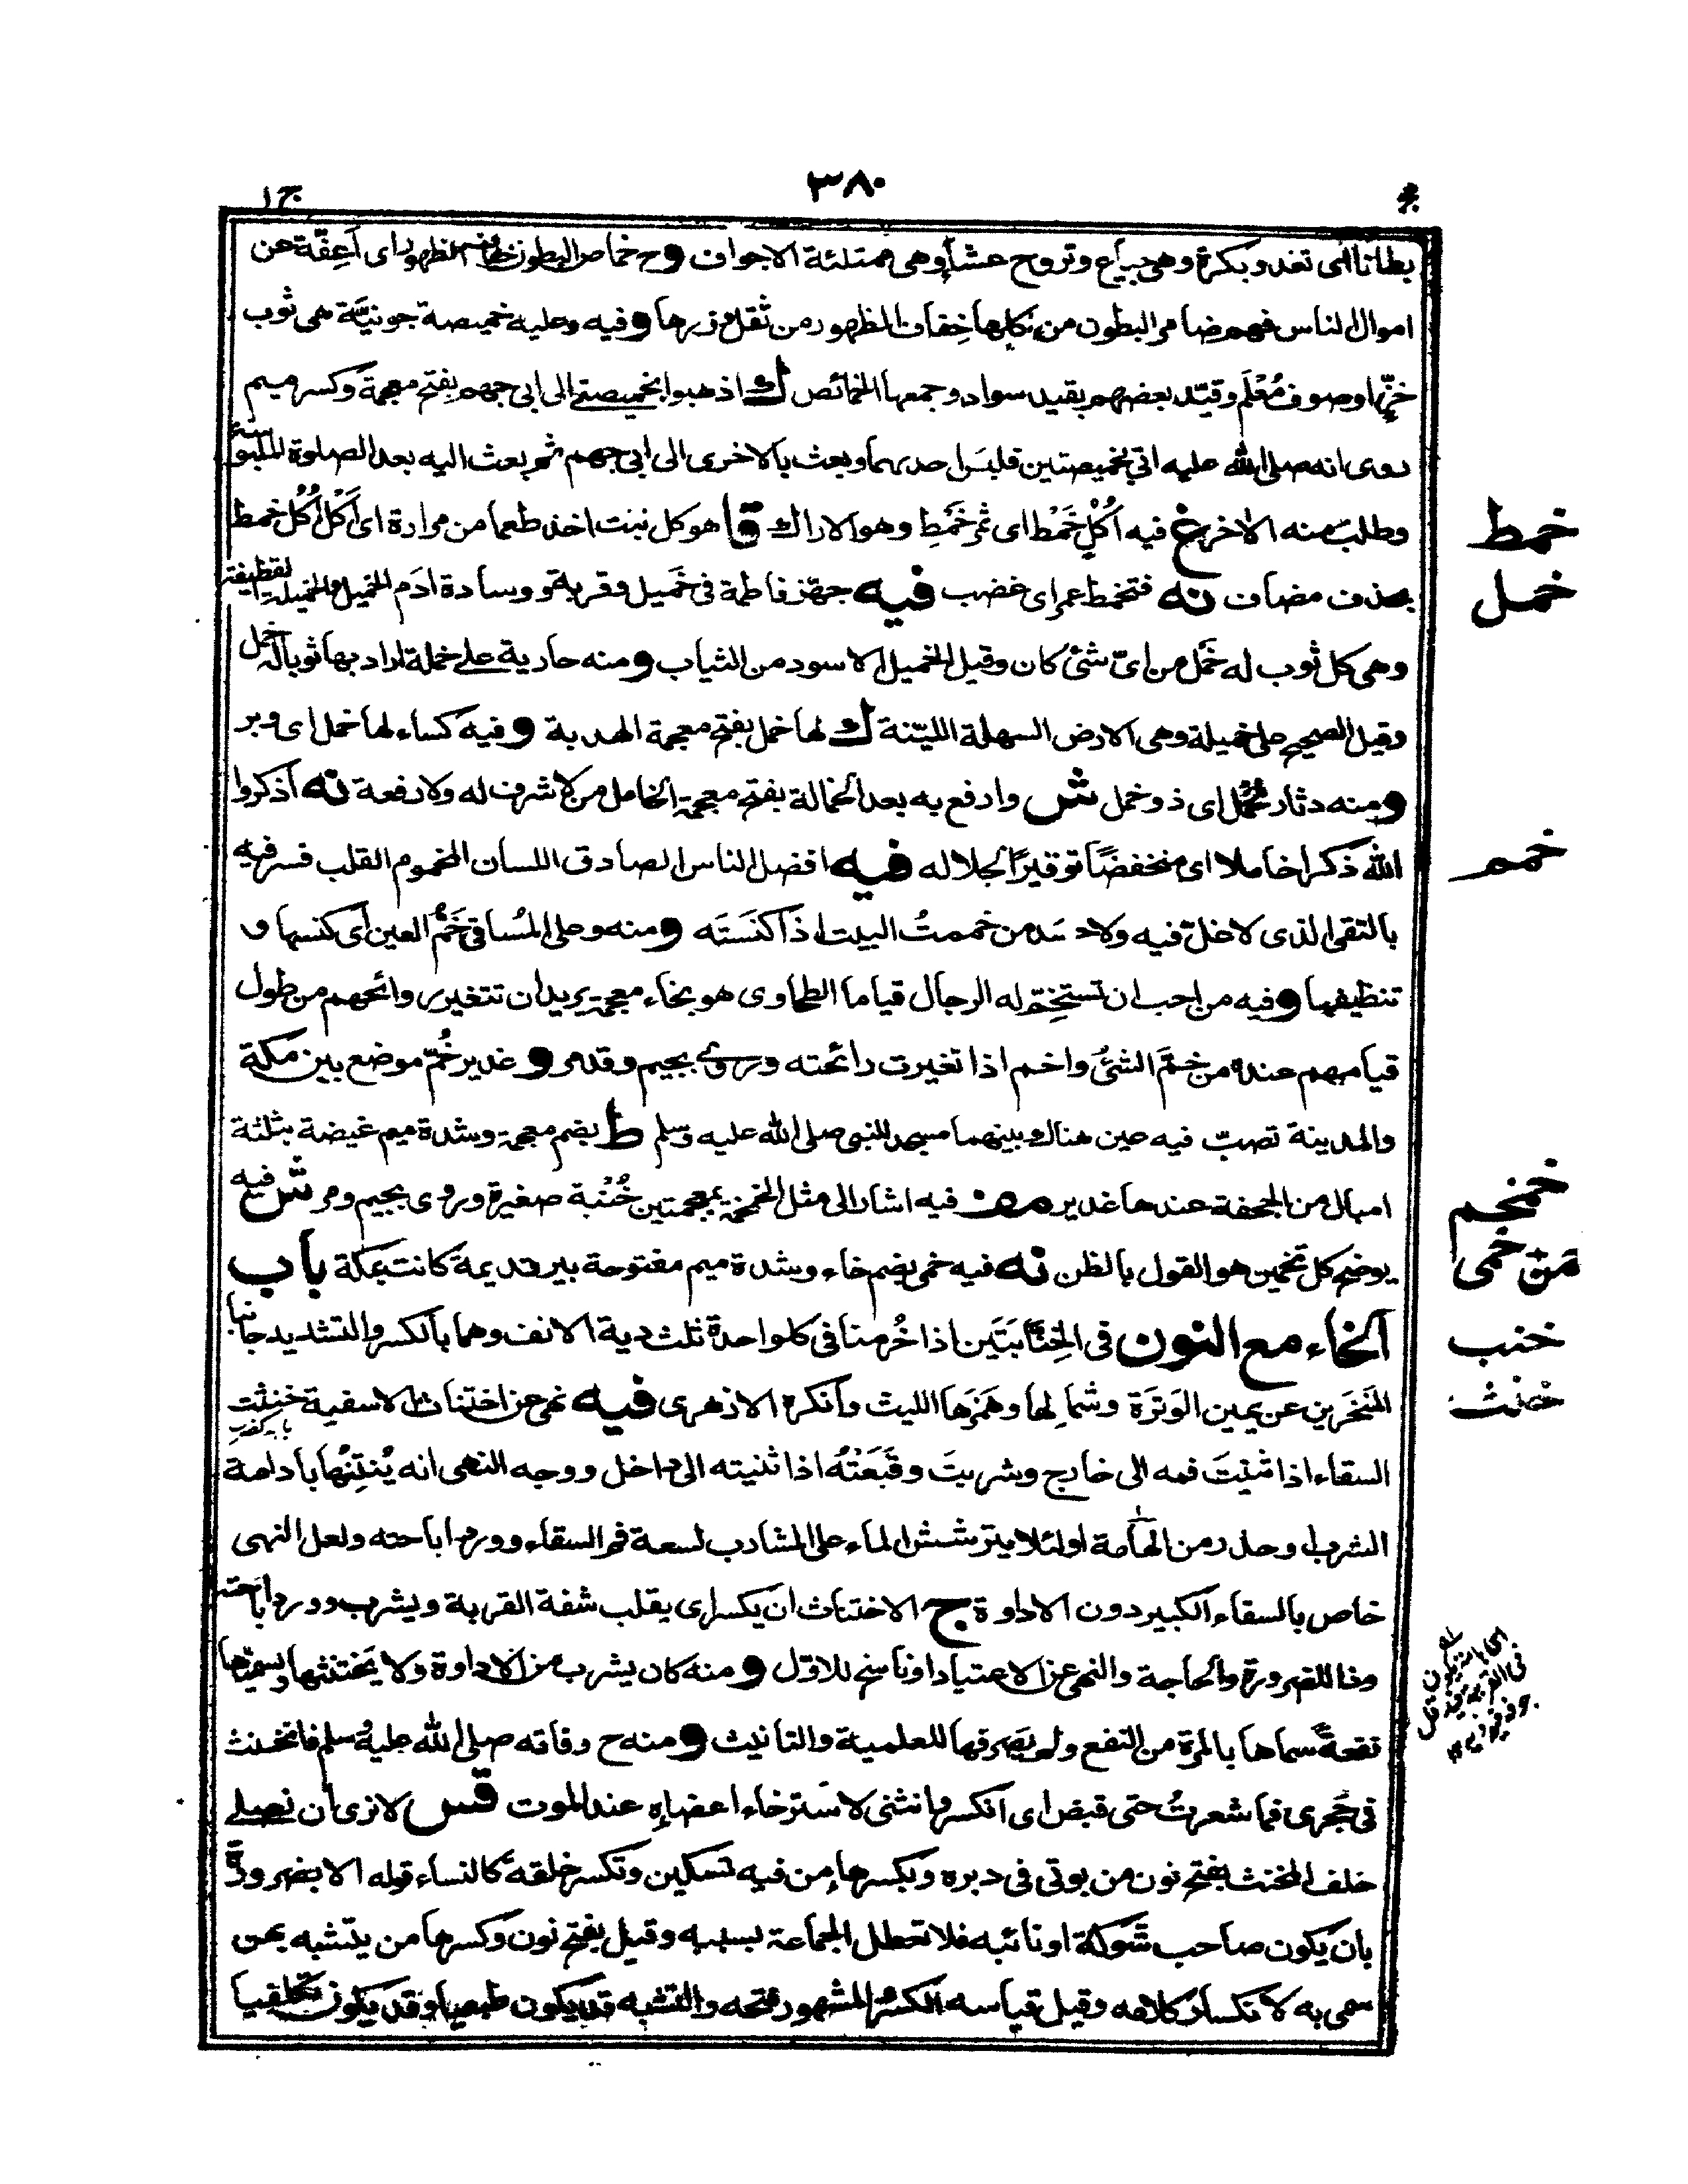 ج ١
٣٨٠
بطانا اى تغدو بكرة وهى جياع وتروح عشاء وهى ممتلئة الاجواف و ح خماص البطون خفاف الظهور اى اعِفّة عن
اموال الناس فهم ضامر البطون من اكلها خِفاف الظهور من ثقل وزرها و فيه وعليه خميصة جونيّة هى ثوب
خزّ او صوف مُعْلَم وقيّد بعضهم بقيد سواد وجمعها الخمائص ك اذهبوا بخميصتى الى ابى جهم بفتح معجمة وكسر ميم
روى انه صلى الله عليه اتى بخميصتين فلبس احدىهما وبعث بالاخرى الى ابى جهم ثم بعث اليه بعد الصلوة الملبوسة
وطلب منه الاخر غ فيه اُكُلٍ خَمْط اى ثمر خَمْطٍ وهو الاراك قا هو كل نبت اخذ طعما من مرارة اى اُكُل اُكُل خمط
بحذف مضاف نه فتخمط عمر اى غضب فيه جهّز فاطمة فى خَميل وقربة ووسادة ادَم الخميل والخميلة القطيفة
وهى كل ثوب له خَمْل من اىّ شئ كان وقيل الخميل الاسود من الثياب و منه جارية على خملة اراد بها ثوبا له خمل
وقيل الصحيح على خميلة وهى الارض السهلة الليّنة ك لها خمل بفتح معجمة الهدبة و فيه كساء لها خمل اى وبر
و منه دثار مُخْمَل اى ذو خمل ش وارفع به بعد الخمالة بفتح معجمة الخامل من لا شرف له ولا رفعة نه اذكروا
الله ذكرا خاملا اى منخفضًا توقيرًا لجلاله فيه افضل الناس الصادق اللسان المخموم القلب فسر فيه
بالتقى الذى لا غلّ فيه ولا حسد من خممتُ البيت اذا كَنَسْتَه و منه وعلى المُساقى خَمُّ العين اى كنسها و
تنظيفها و فيه من احب ان تستخِمّ له الرجال قياما الطحاوى هو بخاء معجمة يريد ان تتغير روائحهم من طول
قيامهم عنده من خَمَّ الشئُ واخم اذا تغيرت رائحته وروى بجيم وقد مر و غدير خُمّ موضع بين مكة
والمدينة تصبّ فيه عين هناك وبينهما مسجد للنبى صلى الله عليه وسلم ط بضم معجمة وشدة ميم غيضة بثلثة
اميال من الجحفة عندها غدير مف فيه اشار الى مثل الخمخمة بمعجمتين خُنْبة صغيرة وروى بجيم ومر ش فيه
يوضح كل تخمين هو القول بالظن نه فيه خمى بضم خاء وشدة ميم مفتوحة بير قديمة كانت بمكة باب
الخاء مع النون فى الخِنّابَتَين اذا خُرِمتا فى كل واحدة ثلث دية الانف وهما بالكسر والتشديد جانبا
المَنخَرين عن يمين الوَتَرَة وشمالها وهَمَزَها الليث وانكره الازهرى فيه نهى عن اختناث الاسقية خنثت
السقاء اذا ثنيتَ فمه الى خارج وشربتَ وقَبَعْتُه اذا ثنيته الى داخل ووجه النهى انه يُنتِنُها بادامة
الشرب او حذر من الهامّة او لئلا يترشش الماء على الشارب لسعة فم السقاء وورد اباحته ولعل النهى
خاص بالسقاء الكبير دون الاداوة ج الاختناث ان يكسر اى يقلب شفة القربة ويشرب وورد اباحته
وذا للضرورة والحاجة والنهى عن الاعتياد او ناسخ للاوّل و منه كان يشرب من الاداوة ولا يختنثها ويسميها
نفعةً سماها بالمرة من النفع ولم يصرفها للعلمية والتانيث و منه ح وفاته صلى الله عليه وسلم فانخنث
فى حَجرى فما شعرتُ حتى قبض اى انكسر وانثنى لاسترخاء اعضاءه عند الموت قس لا نرى ان نصلى
خلف المخنث بفتح نون من يوتى فى دبره وبكسرها من فيه تسكين وتكسر خلقة كالنساء قوله الا بضرورة
بان يكون صاحب شوكة او نائبه فلا تعطل الجماعة بسببه وقيل بفتح نون وكسرها من يتشبه بهن
سمى به لانكسار كلامه وقيل قياسه الكسر والمشهور فتحه والتشبه قد يكون طبعيا وقد يكون تكلفيا
خمط
خمل
خمم
خمخم
خمن خمى
خنب
خنث